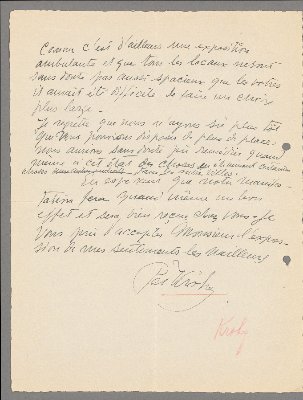 Comme c'est d'ailleurs une exposition
ambulante et que tous les locaux ne sont
sans doute pas aussi spacieux que le vôtre
il aurait été difficile de faire un choix
plus large.
Je regrette que nous n'ayons su plus tôt
que nous pouvions disposer de plus de place.
nous aurions sans doute pu remédier quand
même à cet état des choses en
dans les autres villes.
En espérant que notre manifes-
tation fera quand même un bon
effet et sera bien reçue chez vous je
vous prie d'accepter Monsieur l'expres-
sion de mes sentiments les meilleurs
Per Krohg
Krohg